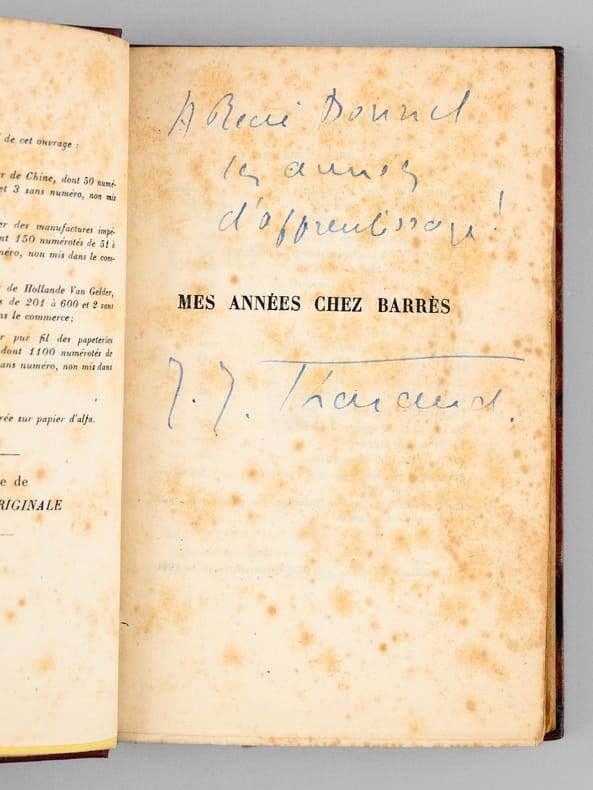 de cet ouvrage :
r de Chine, dont 50 numé-
et 3 sans numéro, non mis
er des manufactures impé-
nt 150 numérotés de 51 à
méro, non mis dans le com-
r de Hollande Van Gelder,
s de 201 à 600 et 2 sans
ns le commerce;
r pur fil des papeteries
dont 1100 numérotés de
sans numéro, non mis dans
rée sur papier d'alfa.
e de
RIGINALE
A René Bonnel
les années
d'apprentissage !
MES ANNÉES CHEZ BARRÈS
J. J. Tharaud.